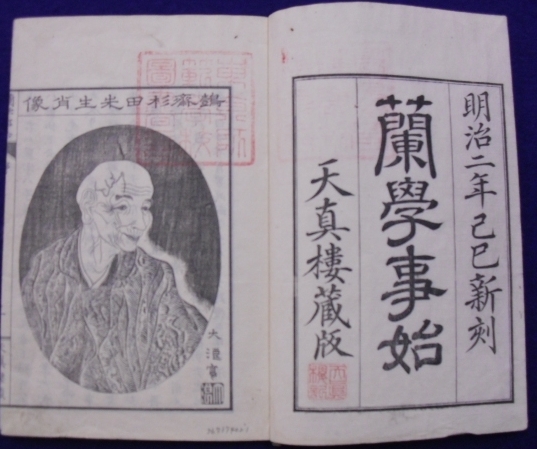 明治二年己巳新刻
蘭學事始
天真樓藏版
天真樓
鷧齋杉田先生肖像